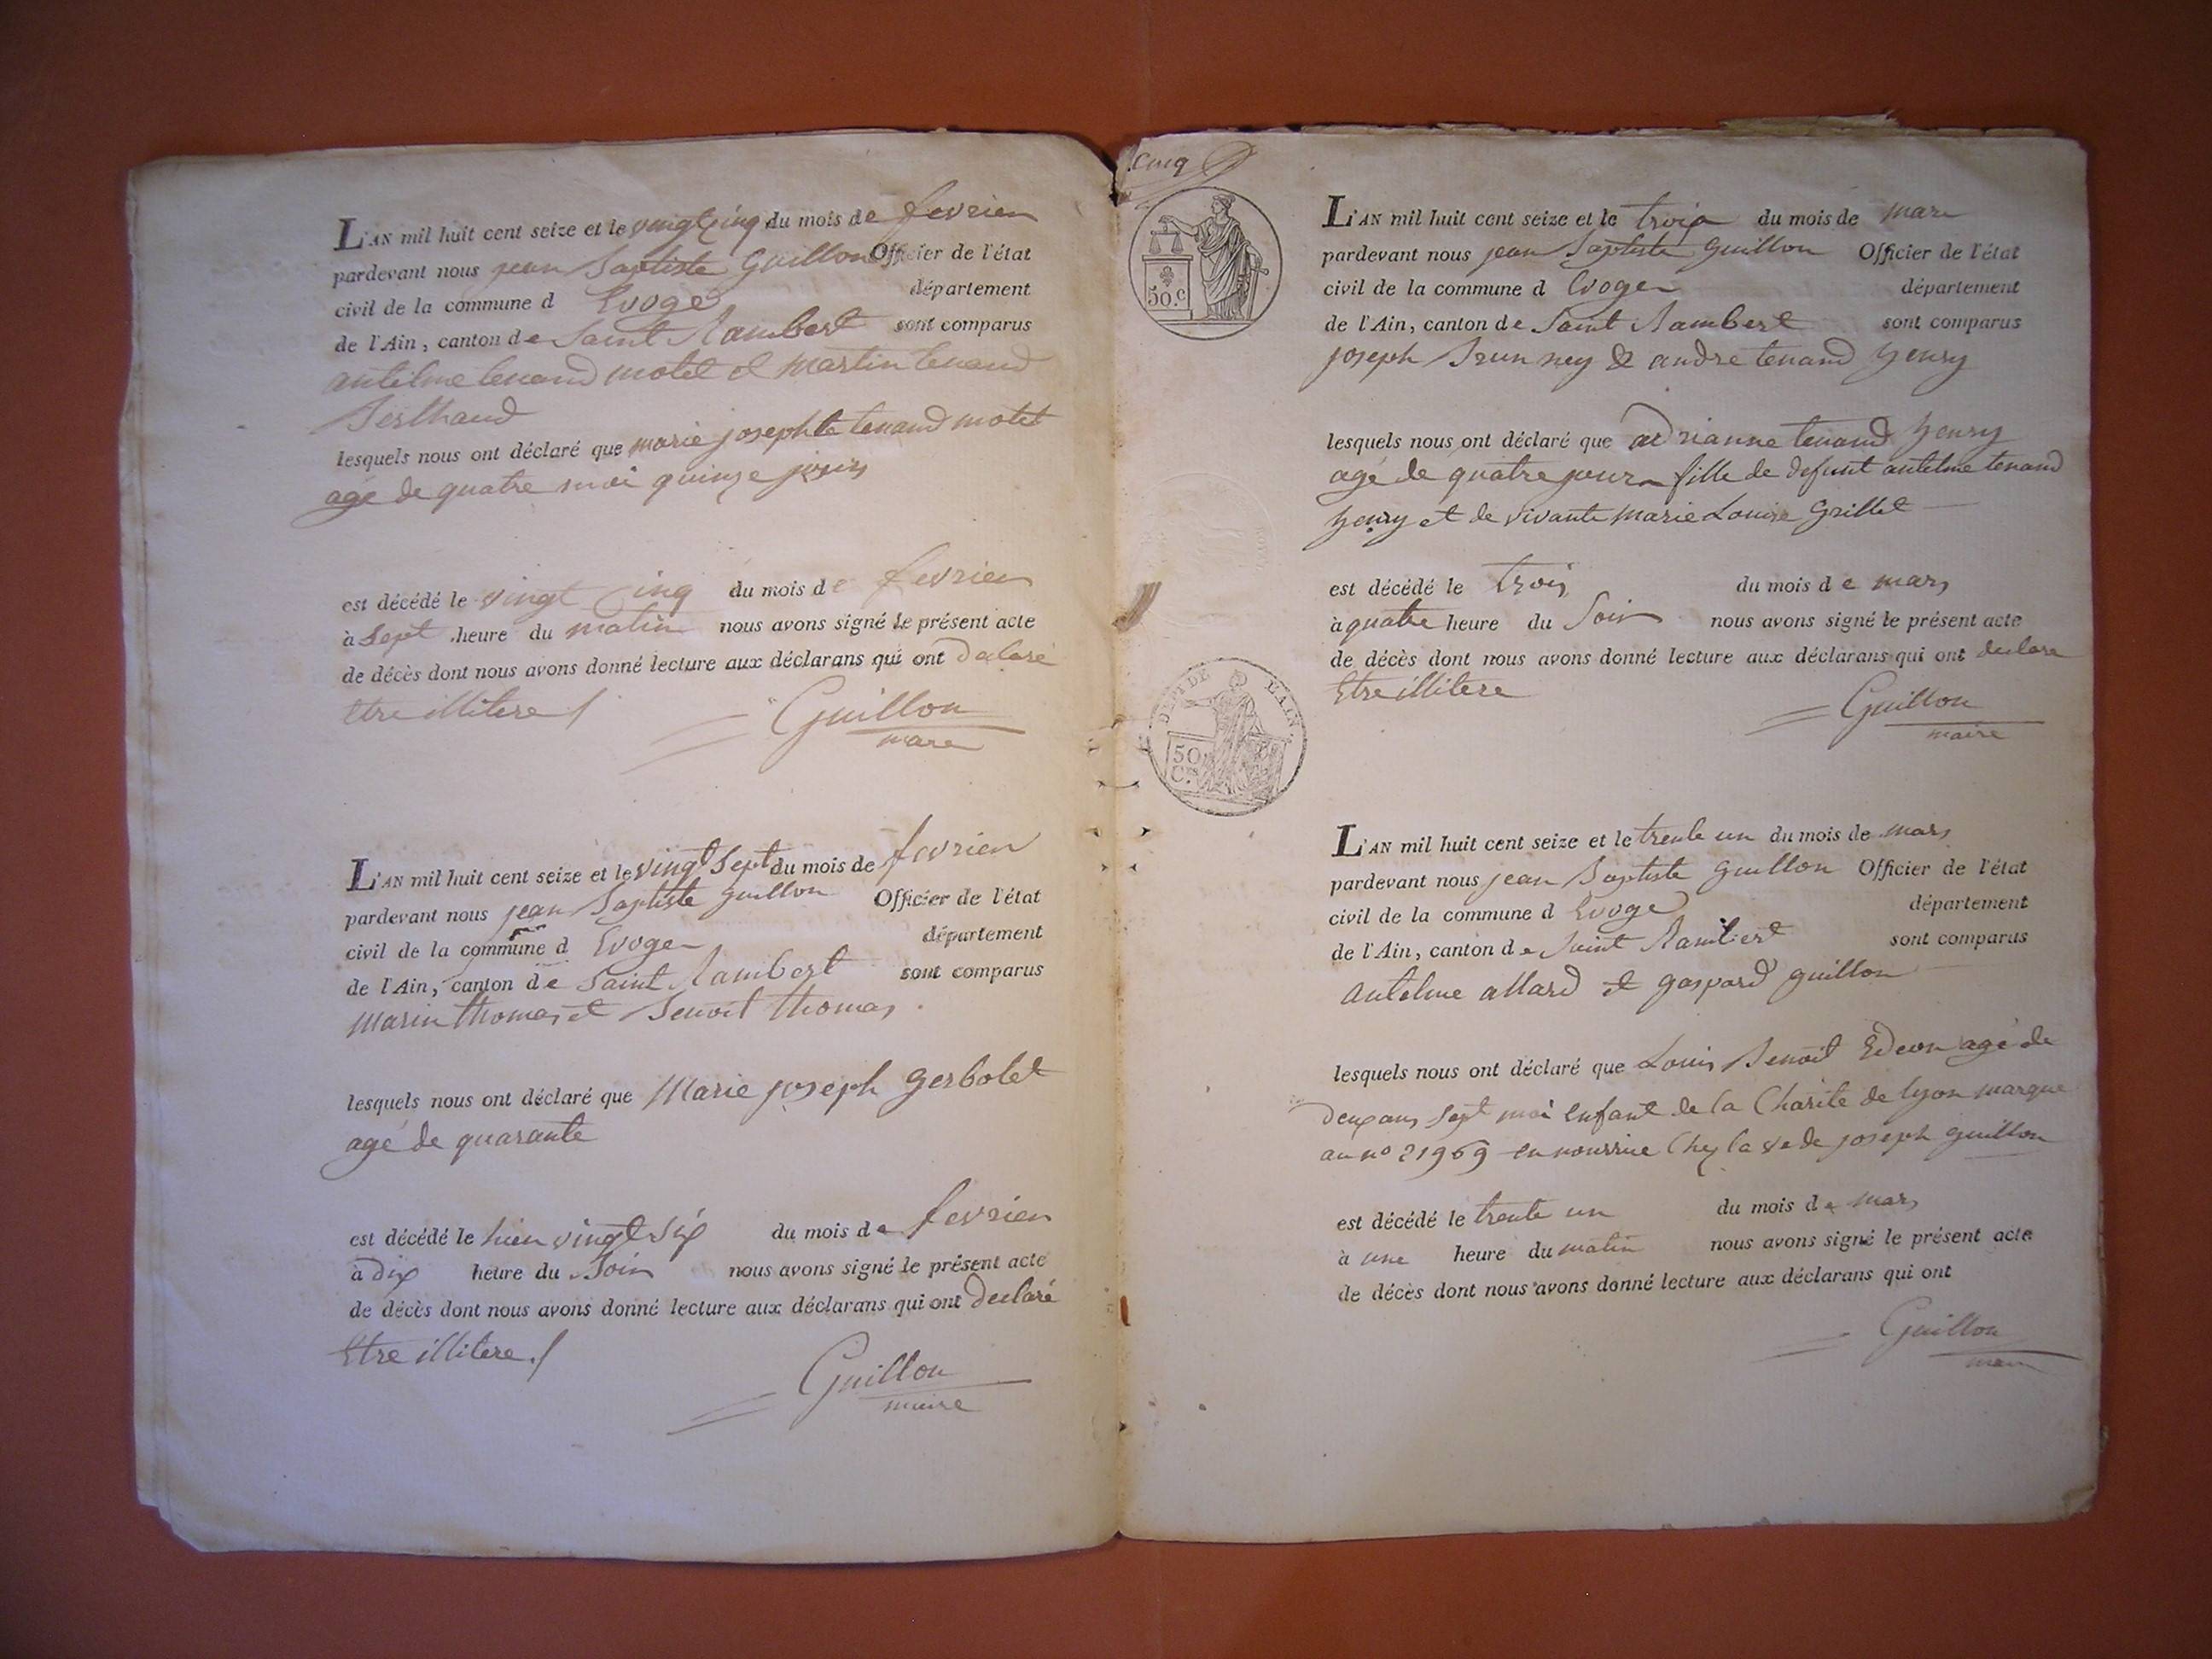 L'AN mil huit cent seize et le vingt cinq du mois de fevrier
pardevant nous jean Baptiste Guillon Officier de l'état
civil de la commune d Evoge département
de l'Ain, canton de Saint Rambert sont comparus
antelme tenand motet et martin tenand
Berthaud
lesquels nous ont déclaré que marie josephte tenand motet
agé de quatre moi quinze jours
est décédé le vingt cinq du mois de fevrier
à sept heure du matin nous avons signé le présent acte
de décès dont nous avons donné lecture aux déclarans qui ont declaré
Etre illitere
Guillon
maire
L'AN mil huit cent seize et le vingt sept du mois de fevrier
pardevant nous jean Baptiste guillon Officier de l'état
civil de la commune d Evoge département
de l'Ain, canton de Saint Rambert sont comparus
marin thomas et Benoit thomas
lesquels nous ont déclaré que Marie joseph gerbolet
agé de quarante
est décédé le hier vingt six du mois de fevrier
à dix heure du Soir nous avons signé le présent acte
de décès dont nous avons donné lecture aux déclarans qui ont declaré
Etre illitere
Guillon
maire
cinq
50.c
DEPT DE L'AIN.
50
C.
L'AN mil huit cent seize et le trois du mois de mars
pardevant nous jean Baptiste guillon Officier de l'état
civil de la commune d Evoge département
de l'Ain, canton de Saint Rambert sont comparus
joseph Brun ney & andre tenand henry
lesquels nous ont déclaré que adrianne tenand henry
agé de quatre jours fille de defunt antelme tenand
henry et de vivante marie Louise Grillet
est décédé le trois du mois de mars
à quatre heure du Soir nous avons signé le présent acte
de décès dont nous avons donné lecture aux déclarans qui ont declare
Etre illitere
Guillon
maire
L'AN mil huit cent seize et le trente un du mois de mars
pardevant nous jean Baptiste guillon Officier de l'état
civil de la commune d Evoge département
de l'Ain, canton de Saint Rambert sont comparus
antelme allard et gaspard guillon
lesquels nous ont déclaré que Louis Benoit Edeon agé de
deux ans sept moi enfant de la Charite de lyon marque
au no 21969 en nourrice chez la ve de joseph guillon
est décédé le trente un du mois de mars
à une heure du matin nous avons signé le présent acte
de décès dont nous avons donné lecture aux déclarans qui ont
Guillon
maire